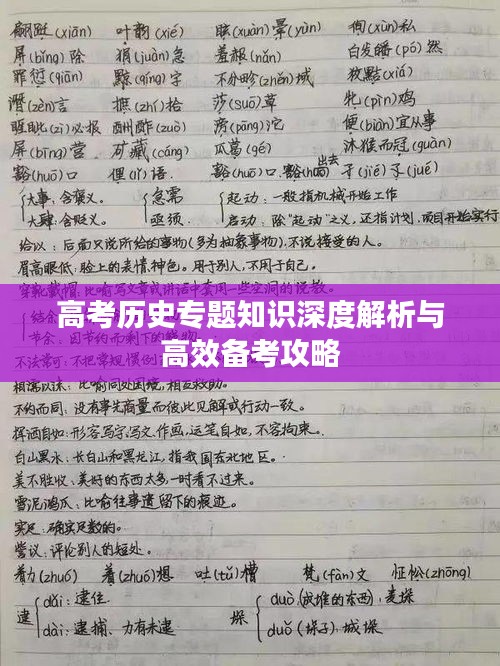 翩跹(xiān) 叶韵(xié) 眩(xuàn)晕(yùn) 徇(xùn)私
屏(bǐng)除 狷(juàn)急 羞赧(nǎn) 白发皤(pó)然
罪愆(qiān) 黥(qíng)字 不分畛(zhěn)域 狡黠(xiá)
谮(zèn)言 摭(zhí)拾 莎(suō)草 牝(pìn)鸡
睚眦(zì)必报 酬酢(zuò) 滂(pāng)沱 便(biàn)宜从事
屏(bīng)营 矿藏(cáng) 瓜葛(gé) 沐猴而冠(guàn)
豁(huō)口 俚(lǐ)语 豁(huō)口、豁(huō)出去 孑(jié)孓(jué)
大事:含褒义。 急需 起动:一般指机械开始工作
大肆:含贬义。 亟须 启动:除"起动"之义,还指计划、项目开始实行
给以:后面只说所给的事物(多为抽象事物),不说接受的人。
眉高眼低:脸上的表情,神色。用于别人,不用于自己。
穿靴戴帽:比喻写文章或讲话中套用一些空洞的说教。
高考历史专题知识深度解析与
高效备考攻略
相濡以沫:比喻同处困境,相互救助。
不约而同:没有事先商量而彼此见解或行动一致。
挥洒自如:形容写字,写文,作画,运笔自如,不容拘束。
白山黑水:长白山和黑龙江,指我国东北地区。
美不胜收:美好的东西太多,一时看不过来。
雪泥鸿爪:比喻往事遗留下的痕迹。
实足:确实足数的。
訾议:评论别人的短处。
着力(zhuó) 着(zhuó)想 吐(tǔ)槽 梵(fàn)文 怔忪(zhōng)
逮 dǎi:逮住 垛 duò(成堆的东西):麦垛
dài:逮捕、力有未逮 duǒ(垛子):城垛